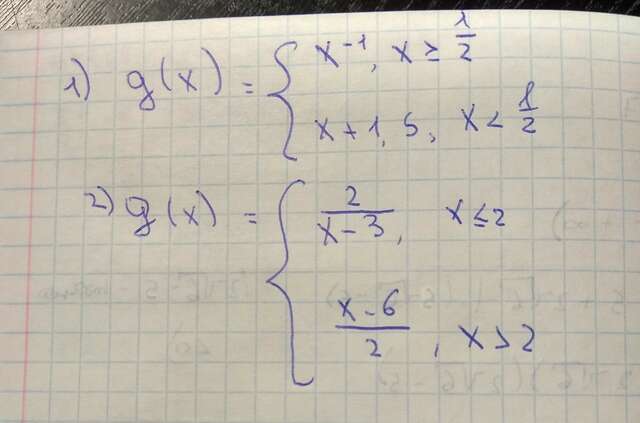 1) g(x) = { x⁻¹, x ≥ 1/2
x + 1,5, x < 1/2
2) g(x) = { 2/(x-3), x ≤ 2
(x-6)/2, x > 2